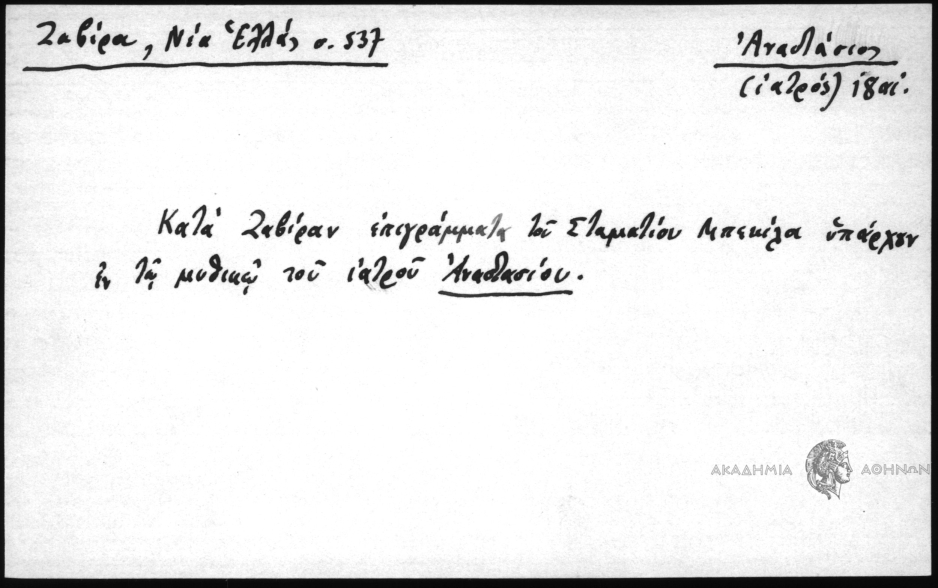 Ζαβίρα, Νέα Ἑλλάς σ. 537
Ἀναστάσιος
(ἰατρός) 18 αἰ.
Κατὰ Ζαβίραν ἐπιγράμματα τοῦ Σταματίου Μπεκέλα ὑπάρχουν
ἐν τῷ μυθικῷ τοῦ ἰατροῦ Ἀναστασίου.
ΑΚΑΔΗΜΙΑ ΑΘΗΝΩΝ